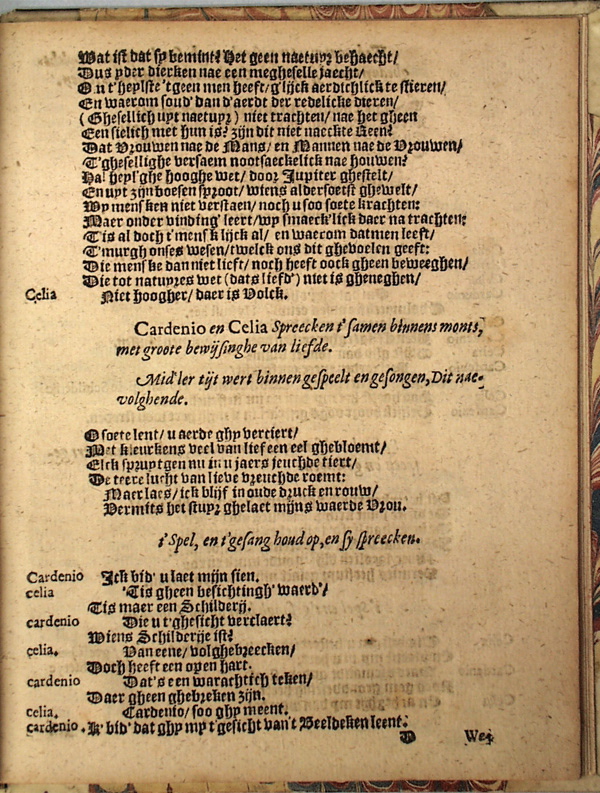 Wat ist dat sy bemint? Het geen naetuyr behaecht/
Dus yder dierken nae een megheselle jaecht/
O n t'heylste 'tgeen men heeft/ g'lijck aerdichlick te stieren/
En waerom soud' dan d'aerdt der redelicke dieren/
(Ghesellich uyt naetuyr) niet trachten/ nae het gheen
Een sielich met hun is? zijn dit niet naeckte Reen?
Dat Vrouwen nae de Mans/ en Mannen nae de Vrouwen/
T'ghesellighe versaem nootsaeckelick nae houwen?
Ha! heyl'ghe hooghe wet/ door Jupiter ghestelt/
En uyt zijn boesen sproot/ wiens aldersoetst ghewelt/
Wy mensken niet verstaen/ noch u soo soete krachten:
Maer onder vinding' leert/ wy smaeck'lick daer na trachten:
T'is al doch t'mensk lijck al/ en waerom datmen leeft/
T'murgh onses wesen/ twelck ons dit ghevoelen geeft:
Die menske dan niet lieft/ noch heeft oock gheen beweeghen/
Die tot natuyres wet (dats liefd') niet is gheneghen/
Celia Niet hoogher/ daer is Volck.
Cardenio en Celia Spreecken t'samen binnens monts,
met groote bewijsinghe van liefde.
Mid'ler tijt wert binnen gespeelt en gesongen, Dit nae-
volghende.
O soete lent/ u aerde ghy verciert/
Met kleurkens veel van lief een eel ghebloemt/
Elck spruytgen nu in u jaers jeuchde tiert/
De teere lucht van lieve vreuchde roemt:
Maer laes/ ick blijf in oude druck en rouw/
Vermits het stuyr ghelaet mijns waerde Vrou.
t'Spel, en t'gesang houd op, en sy spreecken.
Cardenio Ick bid' u laet mijn sien.
celia 'Tis gheen besichtingh' waerd'/
Tis maer een Schilderij.
cardenio Die u t'ghesicht verclaert?
Wiens Schilderije ist?
celia. Van eene/ volghebreecken/
Doch heeft een open hart.
cardenio Dat's een warachtich teken/
Daer gheen ghebreken zijn.
celia. Cardenio/ soo ghy meent.
cardenio. K' bid' dat ghy my t'gesicht van't Beeldeken leent.
D Wey